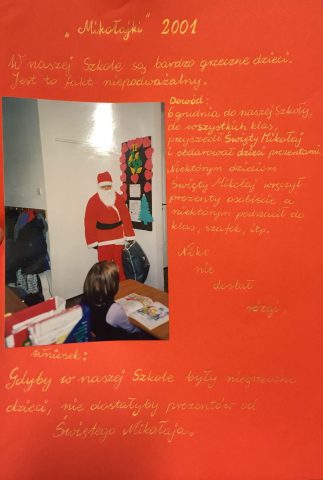 „Mikołajki" 2001
W naszej Szkole są bardzo grzeczne dzieci.
Jest to fakt niepodważalny.
Dowód:
6 grudnia do naszej Szkoły,
do wszystkich klas,
przyszedł Święty Mikołaj
i obdarował dzieci prezentami.
Niektórym dzieciom
Święty Mikołaj wręczył
prezenty osobiście, a
niektórym podrzucił do
klas, szafek, itp.
Nikt
nie
dostał
rózgi.
Wniosek:
Gdyby w naszej Szkole były niegrzeczne
dzieci, nie dostałyby prezentów od
Świętego Mikołaja.